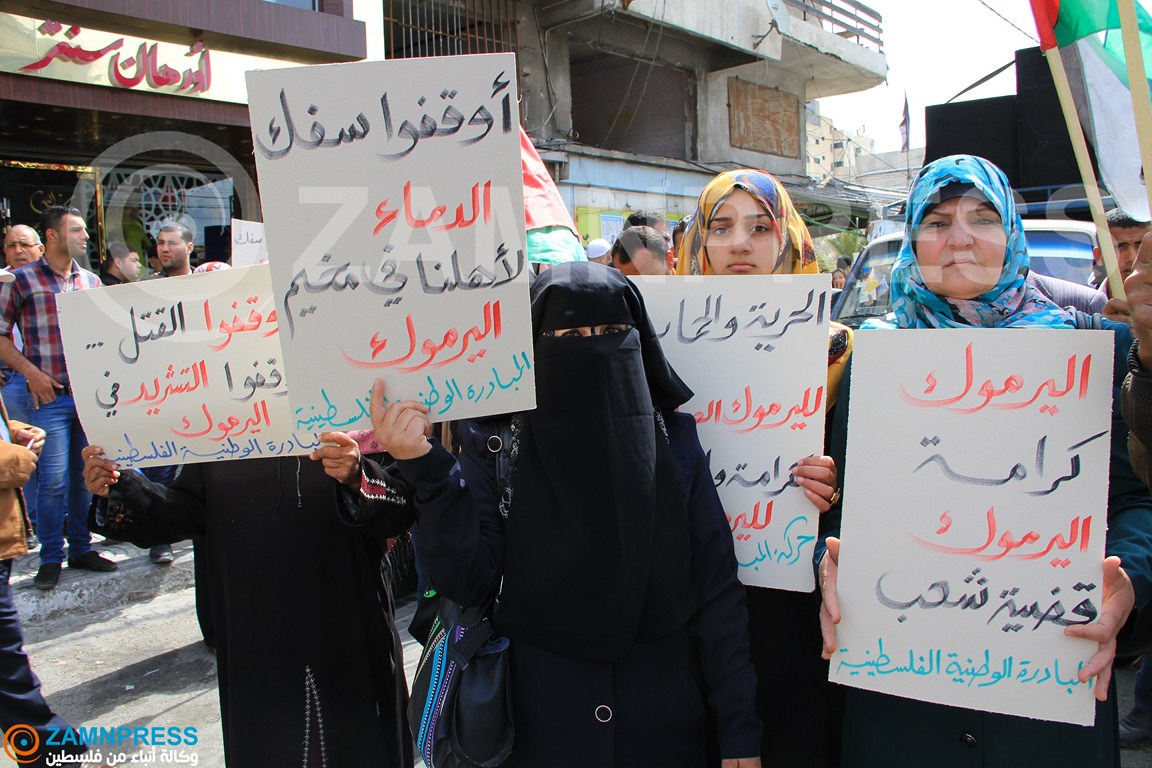 أورهان سنتر
أوقفوا سفك
الدماء
لأهلنا في مخيم
اليرموك
المبادرة الوطنية الفلسطينية
وقفوا القتل ...
وقفوا التشريد في
اليرموك
المبادرة الوطنية الفلسطينية
سفك
الحرية
لليرموك
لليرموك
حركة
اليرموك
كرامة
اليرموك
قضية شعب
المبادرة الوطنية الفلسطينية
ZAMNPRESS
ZAMNPRESS
وكالة أنباء من فلسطين